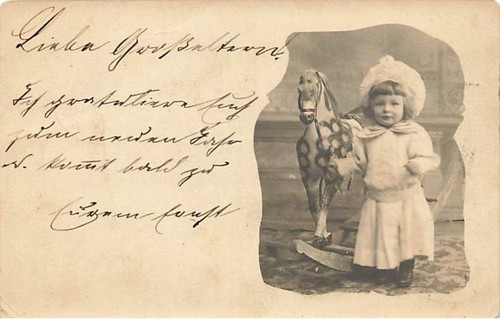 Liebe Großeltern.
Ich gratuliere Euch
zum neuen Jahr
u. kommt bald zu
Eurem Ernst